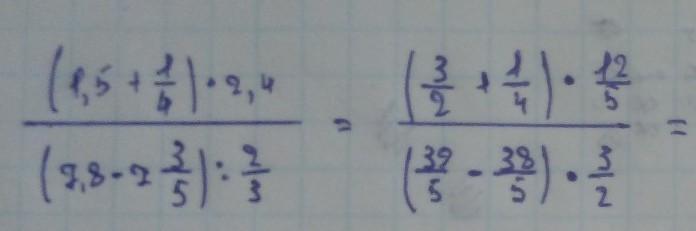 (1,5 + 1/4) · 2,4 / (7,8 - 7 3/5) : 2/3 = (3/2 + 1/4) · 12/5 / (39/5 - 38/5) · 3/2 =